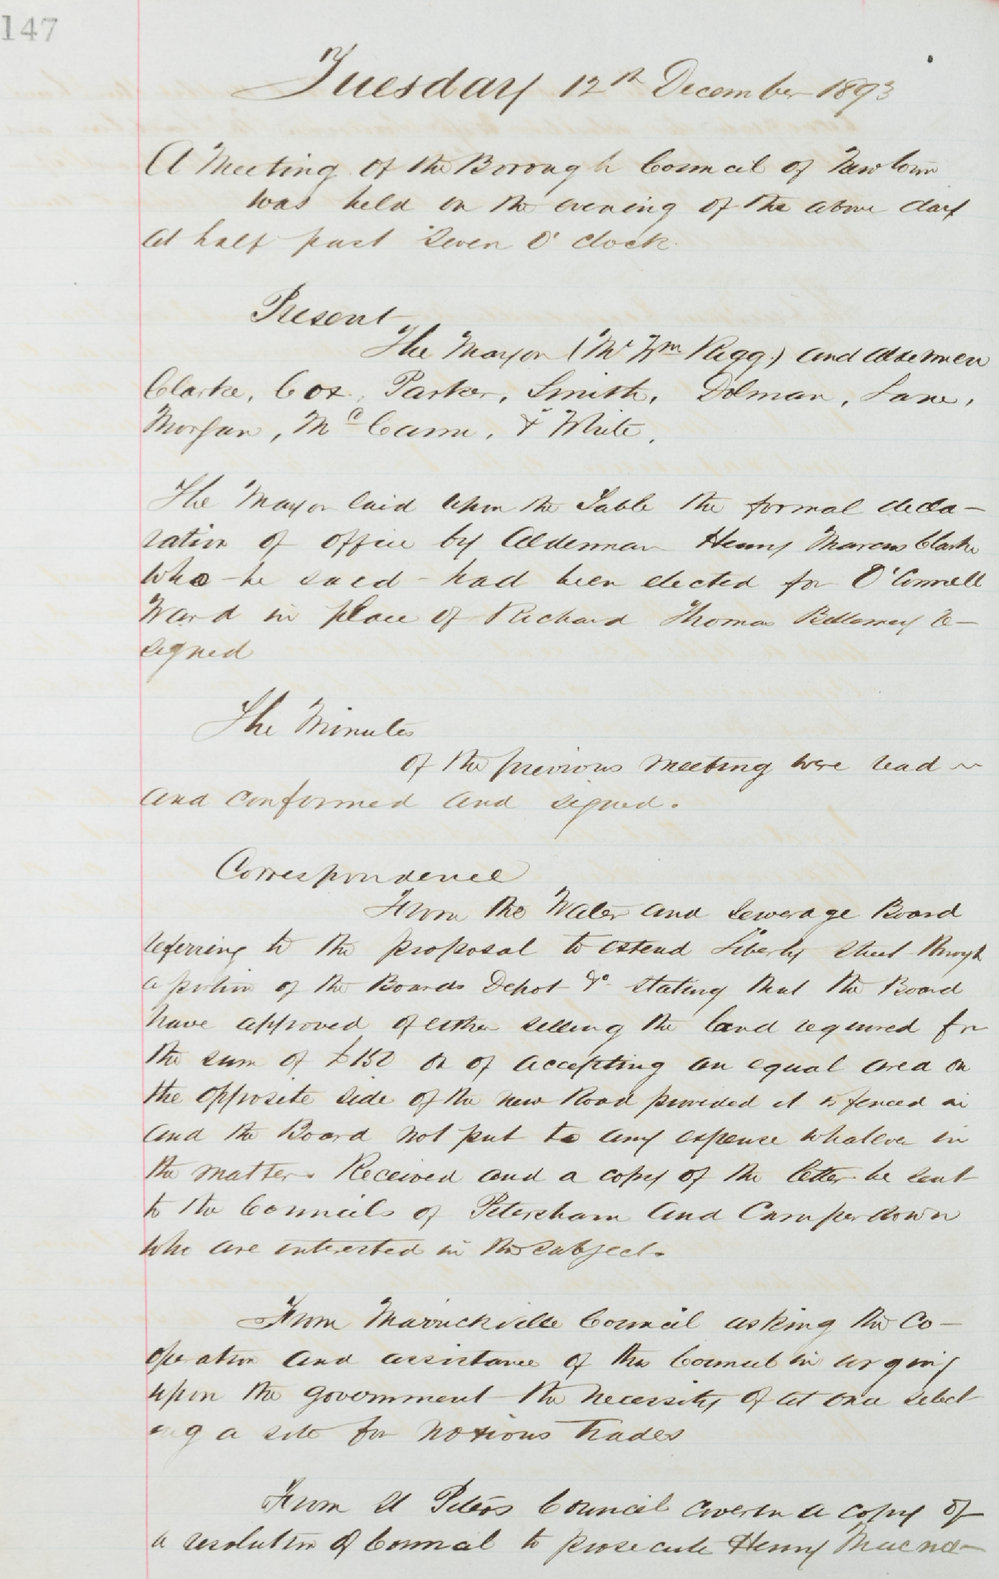 147
Tuesday 12th December 1893
A Meeting of the Borough Council of Newtown
was held on the evening of the above day
at half past Seven O'clock.
Present
The Mayor (Mr Wm Rigg) and Aldermen
Clarke, Cox, Parker, Smith, Dolman, Lane,
Morgan, McCann, & White.
The Mayor laid upon the Table the formal decla-
ration of office by Alderman Henry Marcus Clarke
who - he said - had been elected for O'Connell
Ward in place of Richard Thomas Bellemey re-
signed
The Minutes
of the previous meeting were read
and conformed and signed.
Correspondence
From the Water and Sewerage Board
referring to the proposal to extend Liberty Street through
a portion of the Boards Depot &c stating that the Board
have approved of either selling the land required for
the sum of £150 or of accepting an equal area on
the opposite side of the new Road provided it is fenced in
and the Board not put to any expense whatever in
the matter. Received and a copy of the letter be sent
to the Councils of Petersham and Camperdown
who are interested in the subject.
From Marrickville Council asking the Co-
operation and assistance of this Council in urging
upon the government the necessity of at once select
ing a site for noxious trades
From St Peters Council a copy of
a resolution of Council to prosecute Henry Macna-